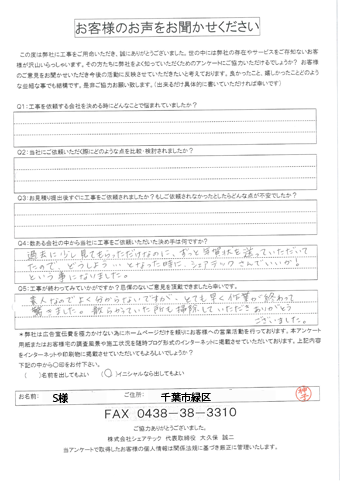 お客様のお声をお聞かせください
この度は弊社に工事をご用命いただき、誠にありがとうございました。世の中には弊社の存在やサービスをご存知ないお客
様が沢山いらっしゃいます。その方たちに弊社をよく知っていただくためのアンケートにご協力いただけるでしょうか？ お客様
のご意見をお聞かせいただき今後の活動に反映させていただきたいと考えております。良かったこと、嬉しかったことどのよう
な些細な事でも結構です。是非ご協力お願い致します。（出来るだけ具体的に書いていただければ幸いです）
Q1：工事を依頼する会社を決める時にどんなことで悩まれていましたか？
Q2：当社にご依頼いただく際にどのような点を比較・検討されましたか？
Q3：お見積り提出後すぐに工事をご依頼されましたか？もしご依頼されなかったとしたらどんな点が不安でしたか？
Q4：数ある会社の中から当社に工事をご依頼いただいた決め手は何ですか？
過去に少し見てもらっただけなのに、ずっと年賀状を送っていただいて
たので、どうしよう…となった時に、シェアテックさんでいいか！
という事になりました。
Q5：工事が終わってみていかがですか？忌憚のないご意見を頂戴できましたら幸いです。
素人なのでよく分からないですが、とても早く作業が終わって
驚きました。散らかっていた所も掃除していただきありがとう
ございました。
＊弊社は広告宣伝費を極力かけない為にホームページだけを頼りにお客様への営業活動を行っております。本アンケート
用紙またはお客様宅の調査風景や施工状況を随時ブログ形式のインターネットに掲載させていただいております。上記内容
をインターネットや印刷物に掲載させていただいてもよろしいでしょうか？
下記の中から○印をお付下さい。
（　）名前を出してもよい　（○）イニシャルなら出してもよい
お名前： S様　ご住所： 千葉市緑区
FAX 0438-38-3310
ご協力ありがとうございました。
株式会社シェアテック 代表取締役 大久保 誠二
当アンケートで取得したお客様の個人情報は関係法規に基づき厳正に管理いたします。